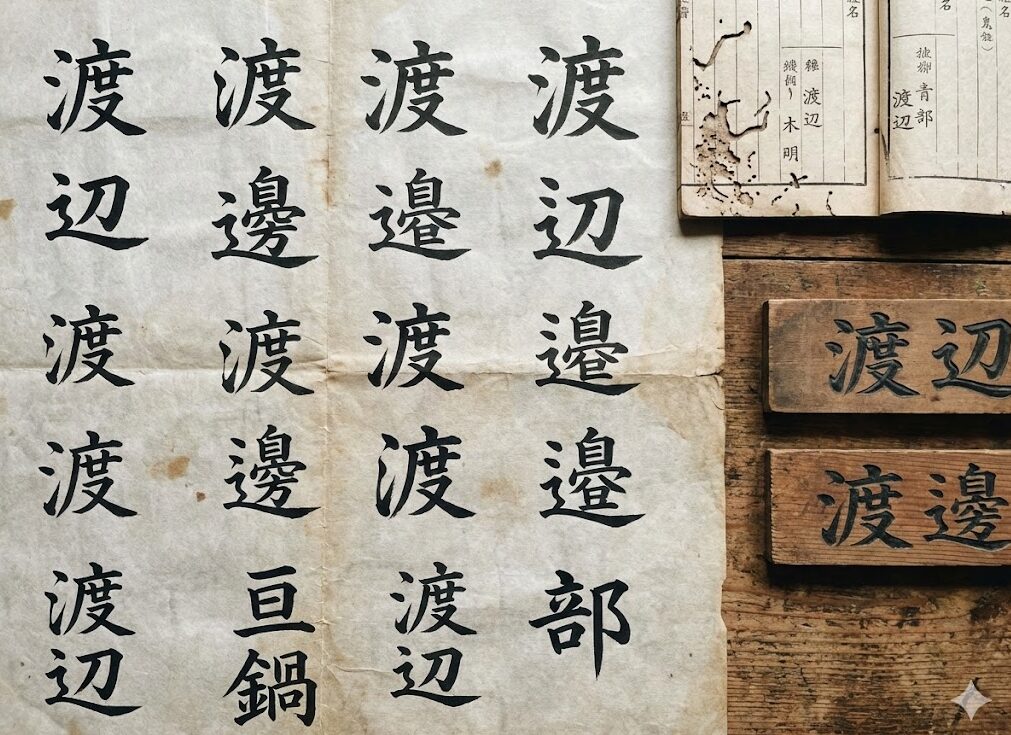 渡辺邉邉部
渡邉渡渡渡辺
渡邊渡邊亘鍋
渡辺渡渡渡辺
青部
渡辺
渡辺
木明
渡辺
渡邊